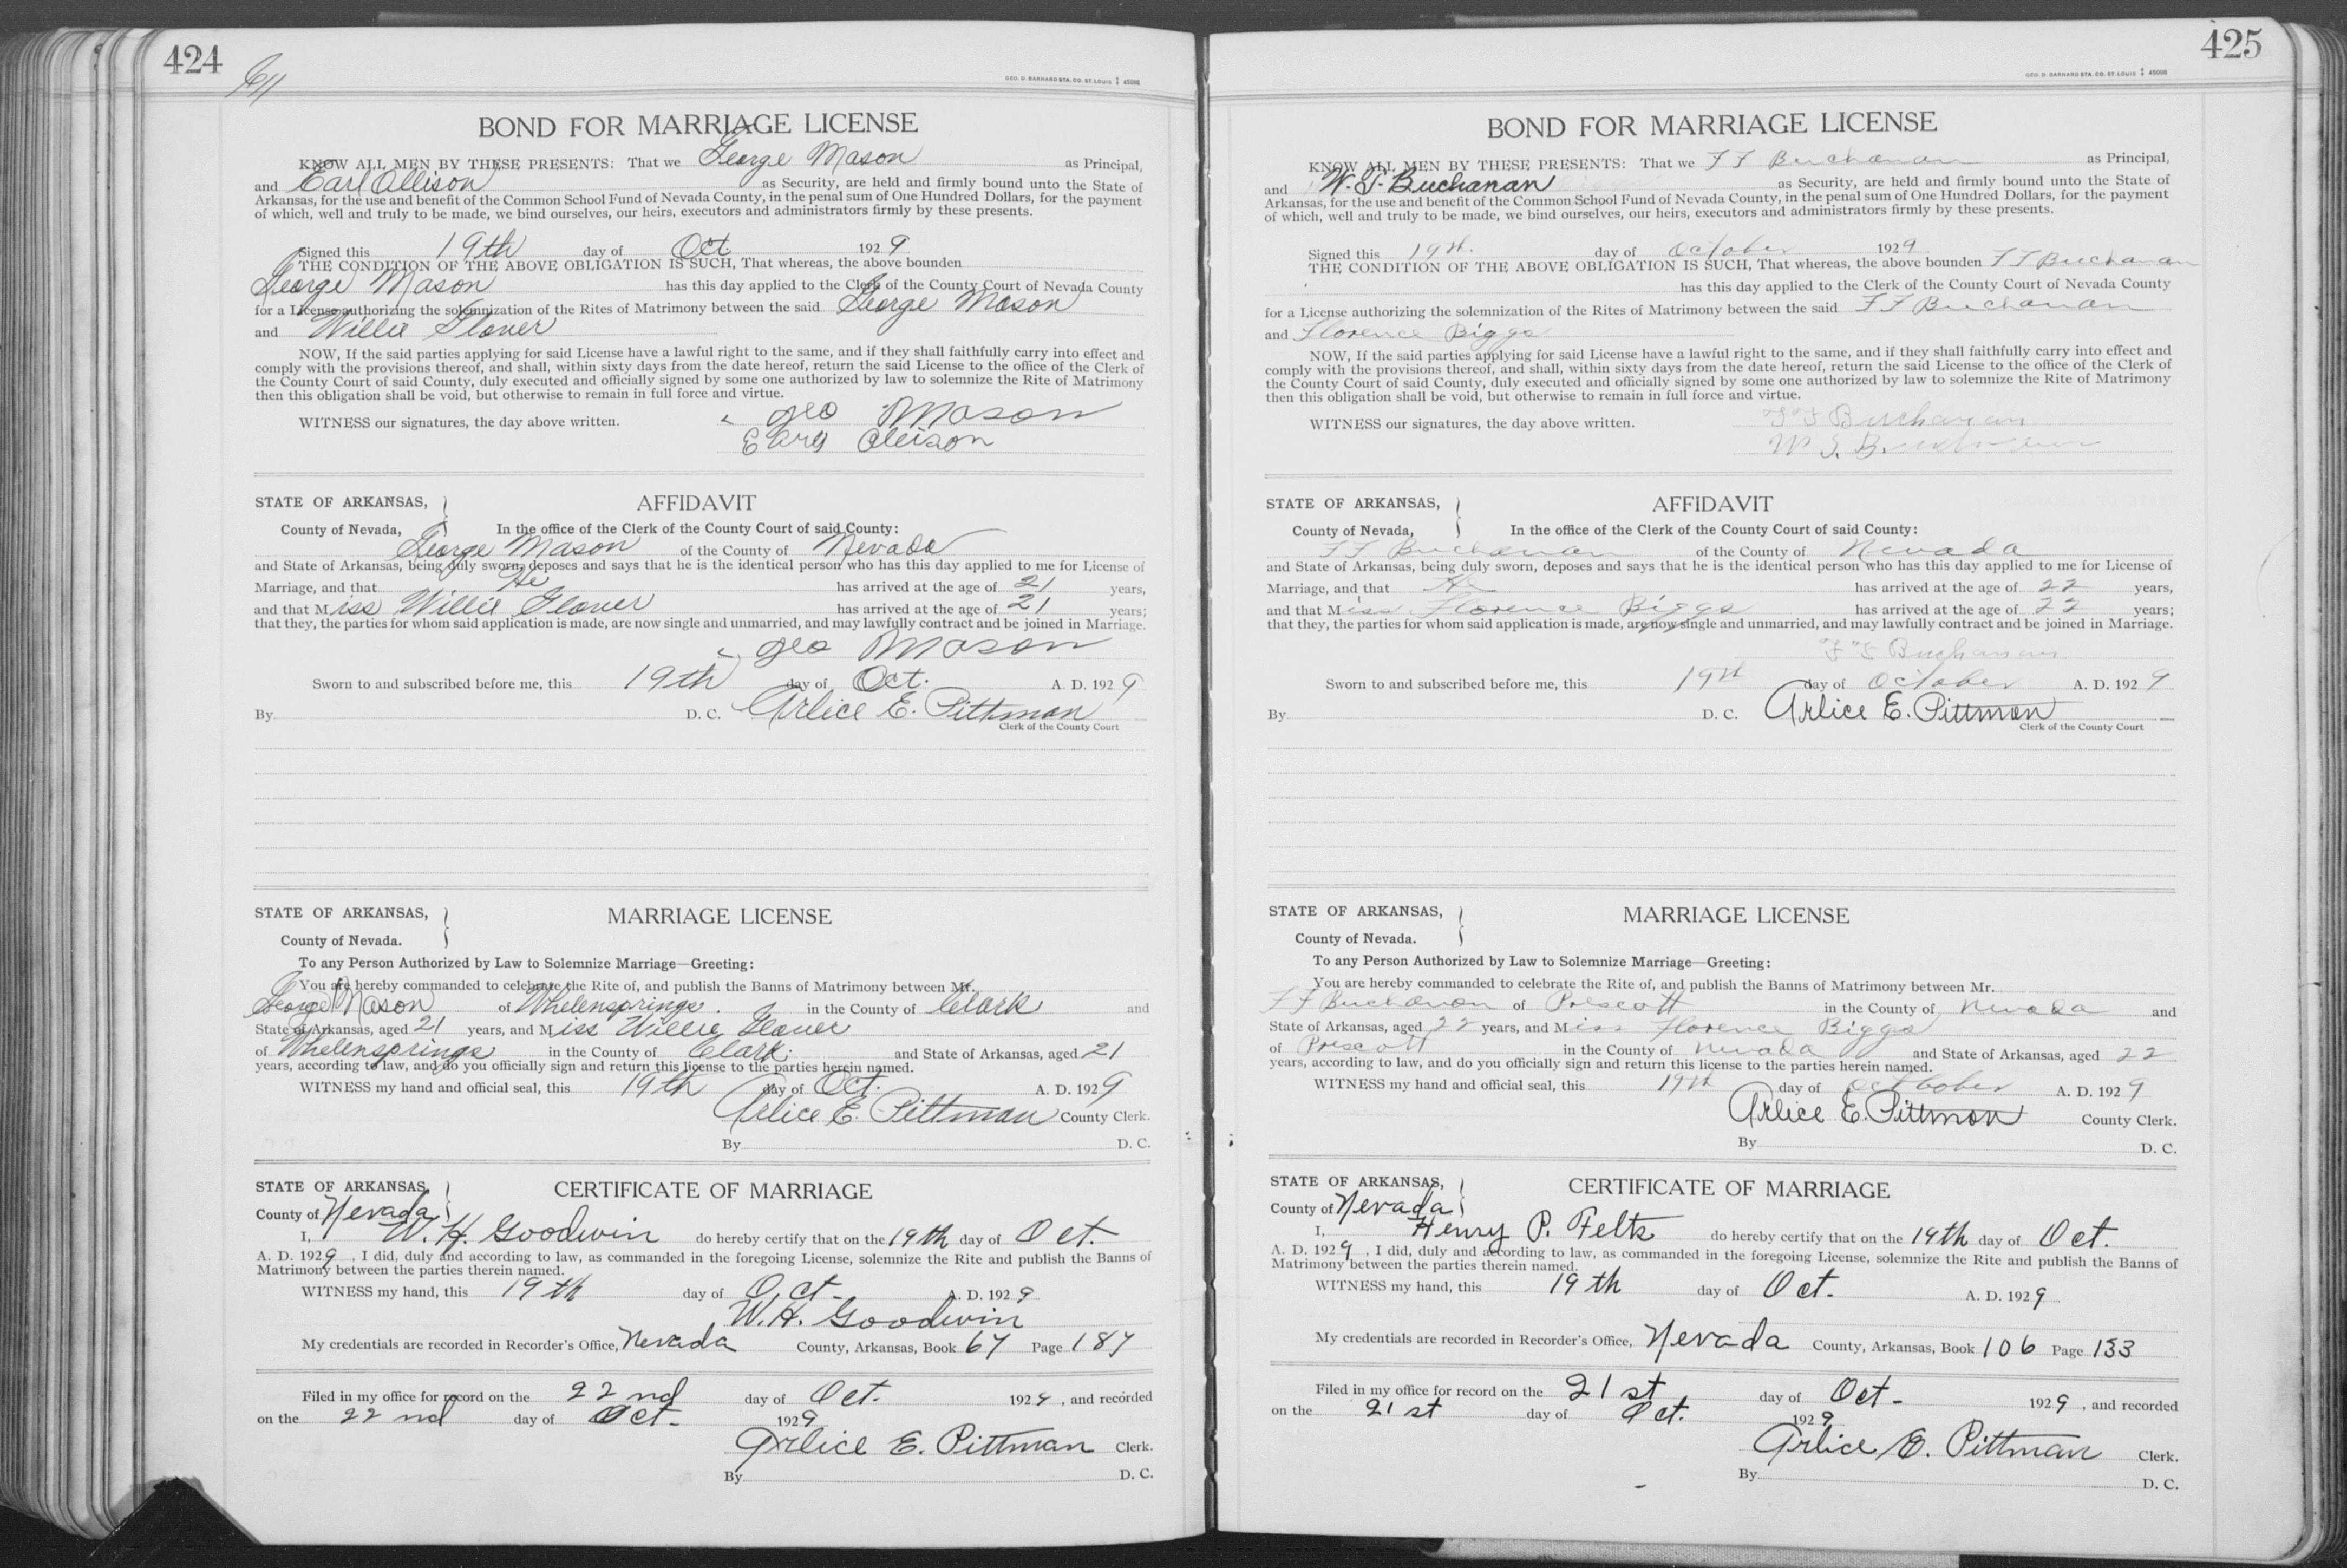 424
GEO. D. BARNARD STA. CO. ST. LOUIS 45098
BOND FOR MARRIAGE LICENSE
KNOW ALL MEN BY THESE PRESENTS: That we George Mason as Principal,
and Earl Allison as Security, are held and firmly bound unto the State of
Arkansas, for the use and benefit of the Common School Fund of Nevada County, in the penal sum of One Hundred Dollars, for the payment
of which, well and truly to be made, we bind ourselves, our heirs, executors and administrators firmly by these presents.
Signed this 19th day of Oct. 1929
THE CONDITION OF THE ABOVE OBLIGATION IS SUCH, That whereas, the above bounden
George Mason has this day applied to the Clerk of the County Court of Nevada County
for a License authorizing the solemnization of the Rites of Matrimony between the said George Mason
and Willie Glover
NOW, If the said parties applying for said License have a lawful right to the same, and if they shall faithfully carry into effect and
comply with the provisions thereof, and shall, within sixty days from the date hereof, return the said License to the office of the Clerk of
the County Court of said County, duly executed and officially signed by some one authorized by law to solemnize the Rite of Matrimony
then this obligation shall be void, but otherwise to remain in full force and virtue.
WITNESS our signatures, the day above written. Geo Mason
Earl Allison
STATE OF ARKANSAS, AFFIDAVIT
County of Nevada, In the office of the Clerk of the County Court of said County:
George Mason of the County of Nevada
and State of Arkansas, being duly sworn, deposes and says that he is the identical person who has this day applied to me for License of
Marriage, and that He has arrived at the age of 21 years,
and that Miss Willie Glover has arrived at the age of 21 years;
that they, the parties for whom said application is made, are now single and unmarried, and may lawfully contract and be joined in Marriage.
Geo Mason
Sworn to and subscribed before me, this 19th day of Oct. A. D. 1929
By D. C. Arlice E. Pittman
Clerk of the County Court
STATE OF ARKANSAS, MARRIAGE LICENSE
County of Nevada.
To any Person Authorized by Law to Solemnize Marriage—Greeting:
You are hereby commanded to celebrate the Rite of, and publish the Banns of Matrimony between Mr.
George Mason of Whelensprings. in the County of Clark and
State of Arkansas, aged 21 years, and Miss Willie Glover
of Whelensprings in the County of Clark. and State of Arkansas, aged 21
years, according to law, and do you officially sign and return this license to the parties herein named.
WITNESS my hand and official seal, this 19th day of Oct. A. D. 1929
Arlice E. Pittman County Clerk.
By D. C.
STATE OF ARKANSAS, CERTIFICATE OF MARRIAGE
County of Nevada
I, W. H. Goodwin do hereby certify that on the 19th day of Oct.
A. D. 1929, I did, duly and according to law, as commanded in the foregoing License, solemnize the Rite and publish the Banns of
Matrimony between the parties therein named.
WITNESS my hand, this 19th day of Oct- A. D. 1929
W. H. Goodwin
My credentials are recorded in Recorder's Office, Nevada County, Arkansas, Book 67 Page 187
Filed in my office for record on the 22nd day of Oct. 1929, and recorded
on the 22nd day of Oct- 1929
Arlice E. Pittman Clerk.
By D. C.
425
GEO. D. BARNARD STA. CO. ST. LOUIS 45098
BOND FOR MARRIAGE LICENSE
KNOW ALL MEN BY THESE PRESENTS: That we F F Buchanan as Principal,
and W. S. Buchanan as Security, are held and firmly bound unto the State of
Arkansas, for the use and benefit of the Common School Fund of Nevada County, in the penal sum of One Hundred Dollars, for the payment
of which, well and truly to be made, we bind ourselves, our heirs, executors and administrators firmly by these presents.
Signed this 19th. day of October 1929
THE CONDITION OF THE ABOVE OBLIGATION IS SUCH, That whereas, the above bounden F F Buchanan
has this day applied to the Clerk of the County Court of Nevada County
for a License authorizing the solemnization of the Rites of Matrimony between the said F F Buchanan
and Florence Biggs
NOW, If the said parties applying for said License have a lawful right to the same, and if they shall faithfully carry into effect and
comply with the provisions thereof, and shall, within sixty days from the date hereof, return the said License to the office of the Clerk of
the County Court of said County, duly executed and officially signed by some one authorized by law to solemnize the Rite of Matrimony
then this obligation shall be void, but otherwise to remain in full force and virtue.
WITNESS our signatures, the day above written. F F Buchanan
W S. Buchanan
STATE OF ARKANSAS, AFFIDAVIT
County of Nevada, In the office of the Clerk of the County Court of said County:
F F Buchanan of the County of Nevada
and State of Arkansas, being duly sworn, deposes and says that he is the identical person who has this day applied to me for License of
Marriage, and that He has arrived at the age of 22 years,
and that Miss Florence Biggs has arrived at the age of 22 years;
that they, the parties for whom said application is made, are now single and unmarried, and may lawfully contract and be joined in Marriage.
F F Buchanan
Sworn to and subscribed before me, this 19th day of October A. D. 1929
By D. C. Arlice E. Pittman
Clerk of the County Court
STATE OF ARKANSAS, MARRIAGE LICENSE
County of Nevada.
To any Person Authorized by Law to Solemnize Marriage—Greeting:
You are hereby commanded to celebrate the Rite of, and publish the Banns of Matrimony between Mr.
F F Buchanan of Prescott in the County of Nevada and
State of Arkansas, aged 22 years, and Miss Florence Biggs
of Prescott in the County of Nevada and State of Arkansas, aged 22
years, according to law, and do you officially sign and return this license to the parties herein named.
WITNESS my hand and official seal, this 19th day of Octbober A. D. 1929
Arlice E. Pittman County Clerk.
By D. C.
STATE OF ARKANSAS, CERTIFICATE OF MARRIAGE
County of Nevada
I, Henry P. Felts do hereby certify that on the 19th day of Oct.
A. D. 1929, I did, duly and according to law, as commanded in the foregoing License, solemnize the Rite and publish the Banns of
Matrimony between the parties therein named.
WITNESS my hand, this 19th day of Oct. A. D. 1929
My credentials are recorded in Recorder's Office, Nevada County, Arkansas, Book 106 Page 133
Filed in my office for record on the 21st day of Oct- 1929, and recorded
on the 21st day of Oct. 1929
Arlice E. Pittman Clerk.
By D. C.